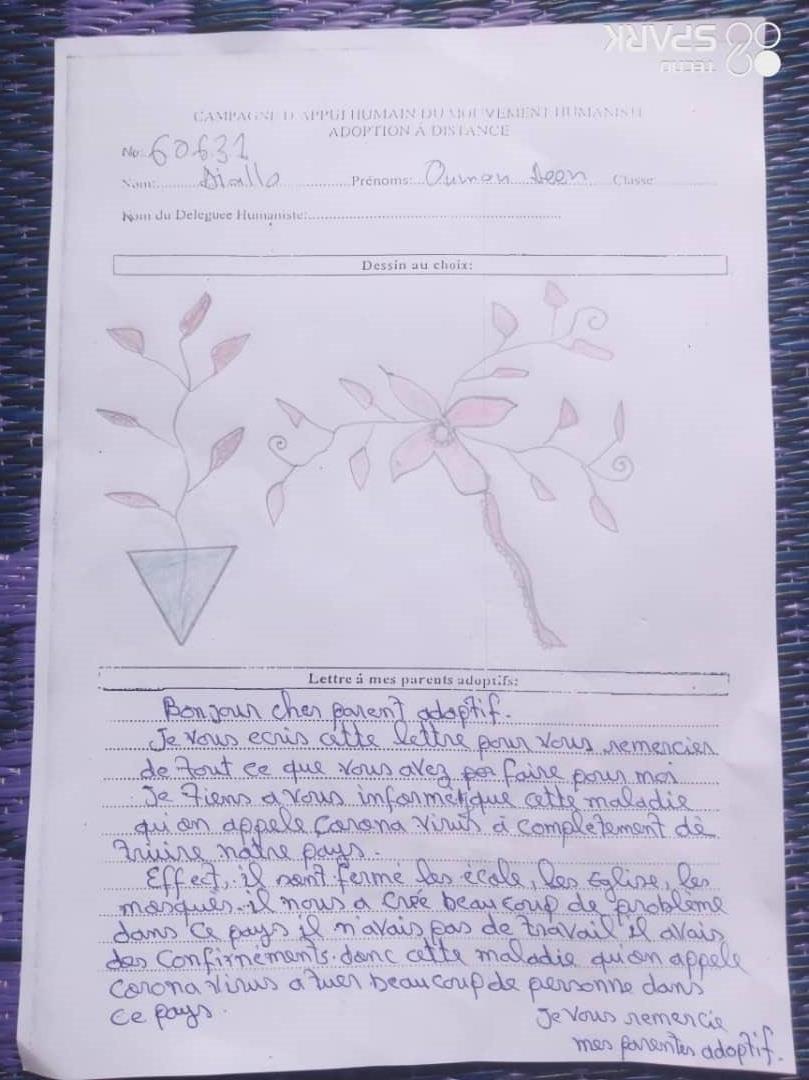 SPARK
TECNO
CAMPAGNE D'APPUI HUMAIN DU MOUVEMENT HUMANISTE
ADOPTION À DISTANCE
No: 60631
Nom: Diallo Prénoms: Oumou Classe
Nom du Deleguee Humaniste:
Dessin au choix:
Lettre á mes parents adoptifs:
Bonjour cher parent adoptif.
Je vous ecris cette lettre pour vous remercier
de tout ce que vous avez per faire pour moi
Je tiens a vous informer que cette maladie
qu'on appele Corona virus à completement de
truire notre pays.
Effect, il sont fermé les école, les Eglise, les
mosqués. il nous a Creé beaucoup de problème
dans ce pays il n'avais pas de travail il avais
des Confirnements. donc cette maladie qu'on appele
Corona virus a tuer beaucoup de personne dans
ce pays.
Je vous remercie
mes parentes adoptif.